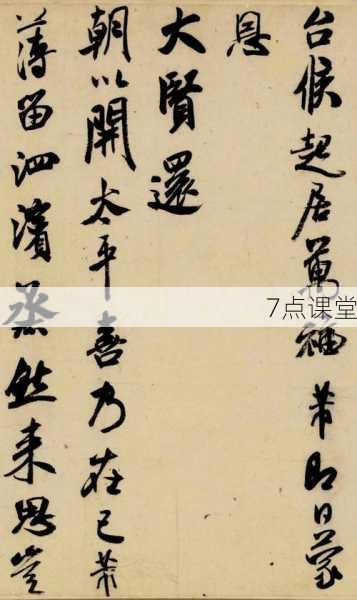 台候起居萬福芾即日蒙
恩
大賢還
朝以開太平喜乃在己芾
薄留泗濱烝然来思豈
7点课堂